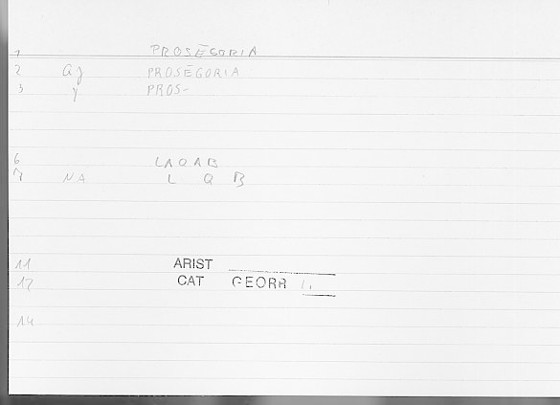 1 PROSĒGORIA
2 aj PROSĒGORIA
3 y PROS-
6 LAQAB
7 NA L Q B
11 ARIST
12 CAT GEORR 1.
14